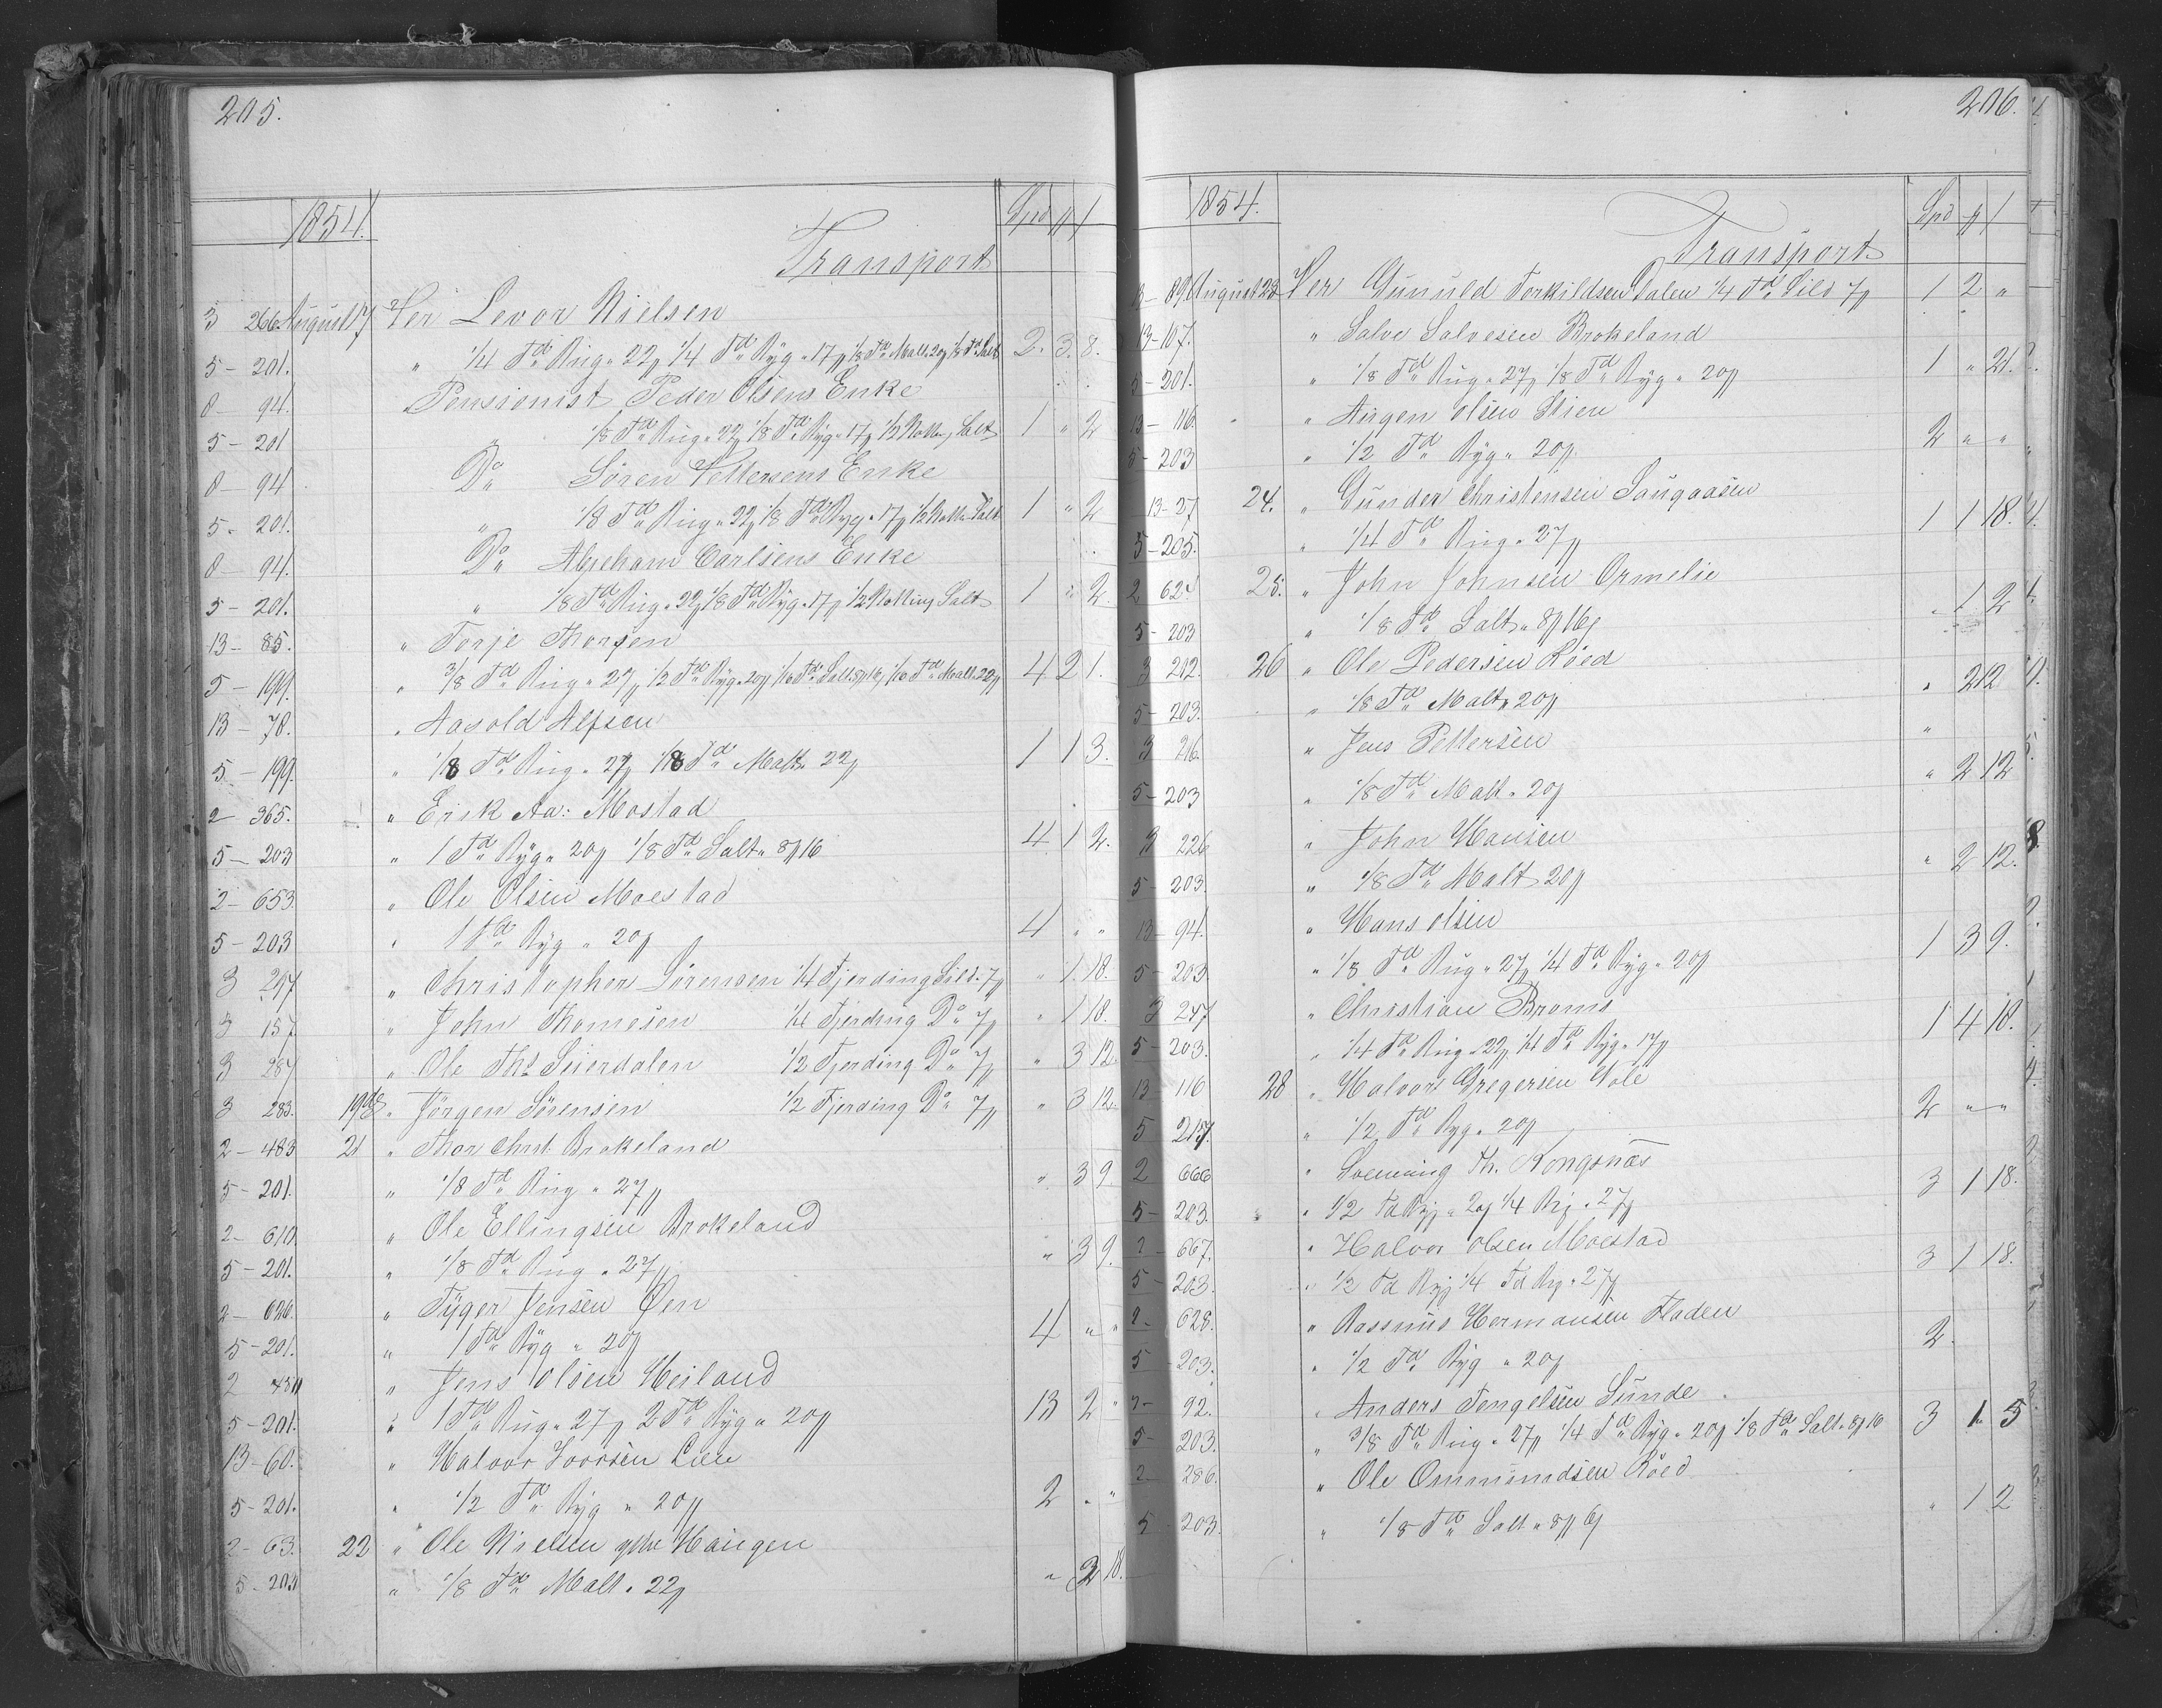 205.
1854. Spd
Transport
3 266 August 17 Per Levor Nielsen
5 - 201. " 1/4 Td Rug " 22 1/4 Td Byg " 17 1/8 Td Malt 20 1/8 Td Salt 2. 3. 8.
8 - 94. Pensionist Peder Olsens Enke
5 - 201 " 1/8 Td Rug " 22 1/8 Td Byg " 17 1/2 Salt 1 " 2
8 - 94 Do Søren Pettersens Enke
5 - 201. " 1/8 Td Rug " 22 1/8 Td Byg " 17 1/2 Salt 1 " 2
8 - 94. Do Abreham Carlsens Enke
5 - 201. " 1/8 Td Rug " 22 1/8 Td Byg " 17 1/2 Salt 1 " 2.
13 - 85. " Torje Thorsen
5 - 199. " 3/8 Td Rug " 27 1/2 Td Byg " 20 1/16 Td Salt 8 16 1/16 Td Malt 22 4 2 1.
13 - 78. " Aasold Alfsen
5 - 199. " 1/8 Td Rug " 27 1/8 Td Malt 22 1 1 3.
2 - 365. " Erik Aa: Mostad
5 - 203 " 1 Td Byg " 20 1/8 Td Salt " 8 16 4 1 2.
2 - 653 " Ole Olsen Moestad
5 - 203 " 1 Td Byg " 20 4 " "
3 297 " Christopher Sørensen 1/4 Fjerding Sild. 7 " 1. 18.
3 157 " John Thomesen 1/4 Fjerding Do 7 " 1 18.
3 287 " Ole Ths Seierdalen 1/2 Fjerding Do 7 " 3 12
3 283. 19de " Jørgen Sørensen 1/2 Fjerding Do 7 " 3 12
2 - 483 21 " Thor Christ. Brokeland
5 - 201. " 1/8 Td Rug " 27 " 3 9.
2 - 610. " Ole Ellingsen Brokeland
5 - 201. " 1/8 Td Rug " 27 " 3 9.
2 - 626. " Tyger Jensen Øen
5 - 201. " 1 Td Byg " 20 4 " "
2 " Jens Olsen Heiland
5 - 201. " 1 Td Rug " 27 2 Td Byg " 20 13 2 "
13 - 60. " Halvor Lien
5 - 201. " 1/2 Td Byg " 20 2 " "
2 - 63. 22 " Ole Nielsen Haugen
5 - 203 " 1/8 Td Malt " 22 " 18.
206.
1854. Spd
Transport
13 - 89 August 23 Per Gunuld Torkildsen Dalen 1/4 Td Sild 7 1 2 "
13 - 107. " Salve Salvesen Brokeland
5 - 201. " 1/8 Td Rug " 27 1/8 Td Byg " 20 1 " 21.
13 - 116. " Olsen Lien
5 - 203 " 1/2 Td Byg " 20 2 " "
13 - 27 24. " Gunder Christensen Saugaasen
5 - 205. " 1/4 Td Rug " 27 1 1 18.
2 624 25. " John Johnsen Ormelie
5 - 203 " 1/8 Td Salt " 8 16 " 1 2
3 202. 26 " Ole Pedersen Røed
5 - 203. " 1/8 Td Malt " 20 " 2 12
3 216. " Jens Pettersen
5 - 203 " 1/8 Td Malt " 20 " 2 12
3 226 " John Hansen
5 - 203. " 1/8 Td Malt 20 " 2 12.
13 - 94. " Hans Olsen
5 - 203. " 1/8 Td Rug " 27 1/4 Td Byg " 20 1 3 9.
3 247 " Christian Broms
5 - 203. " 1/4 Td Rug " 22 1/4 Td Byg " 17 1 4 18.
13 116 28 " Halvor Gregersen Hole
5 217. " 1/2 Td Byg " 20 2 " "
2 666 " Th. Kongsnæs
5 - 203. " 1/2 Td Byg " 20 1/4 Rug " 27 3 1 18.
2 - 667. " Halvor Olsen Moestad
5 - 203. " 1/2 Td Byg 1/4 Td Rug " 27 3 1 18.
2 - 628. " Rasmus Hermansen Fladen
5 - 203. " 1/2 Td Byg " 20 2.
2 - 92. " Anders Tengelsen Sunde
5 - 203. " 3/8 Td Rug " 27 1/4 Td Byg " 20 1/8 Td Salt " 8 16 3 1 5
2 - 286. " Ole Ommundsen Røed
5 - 203. " 1/8 Td Salt " 8 16 " 1 2